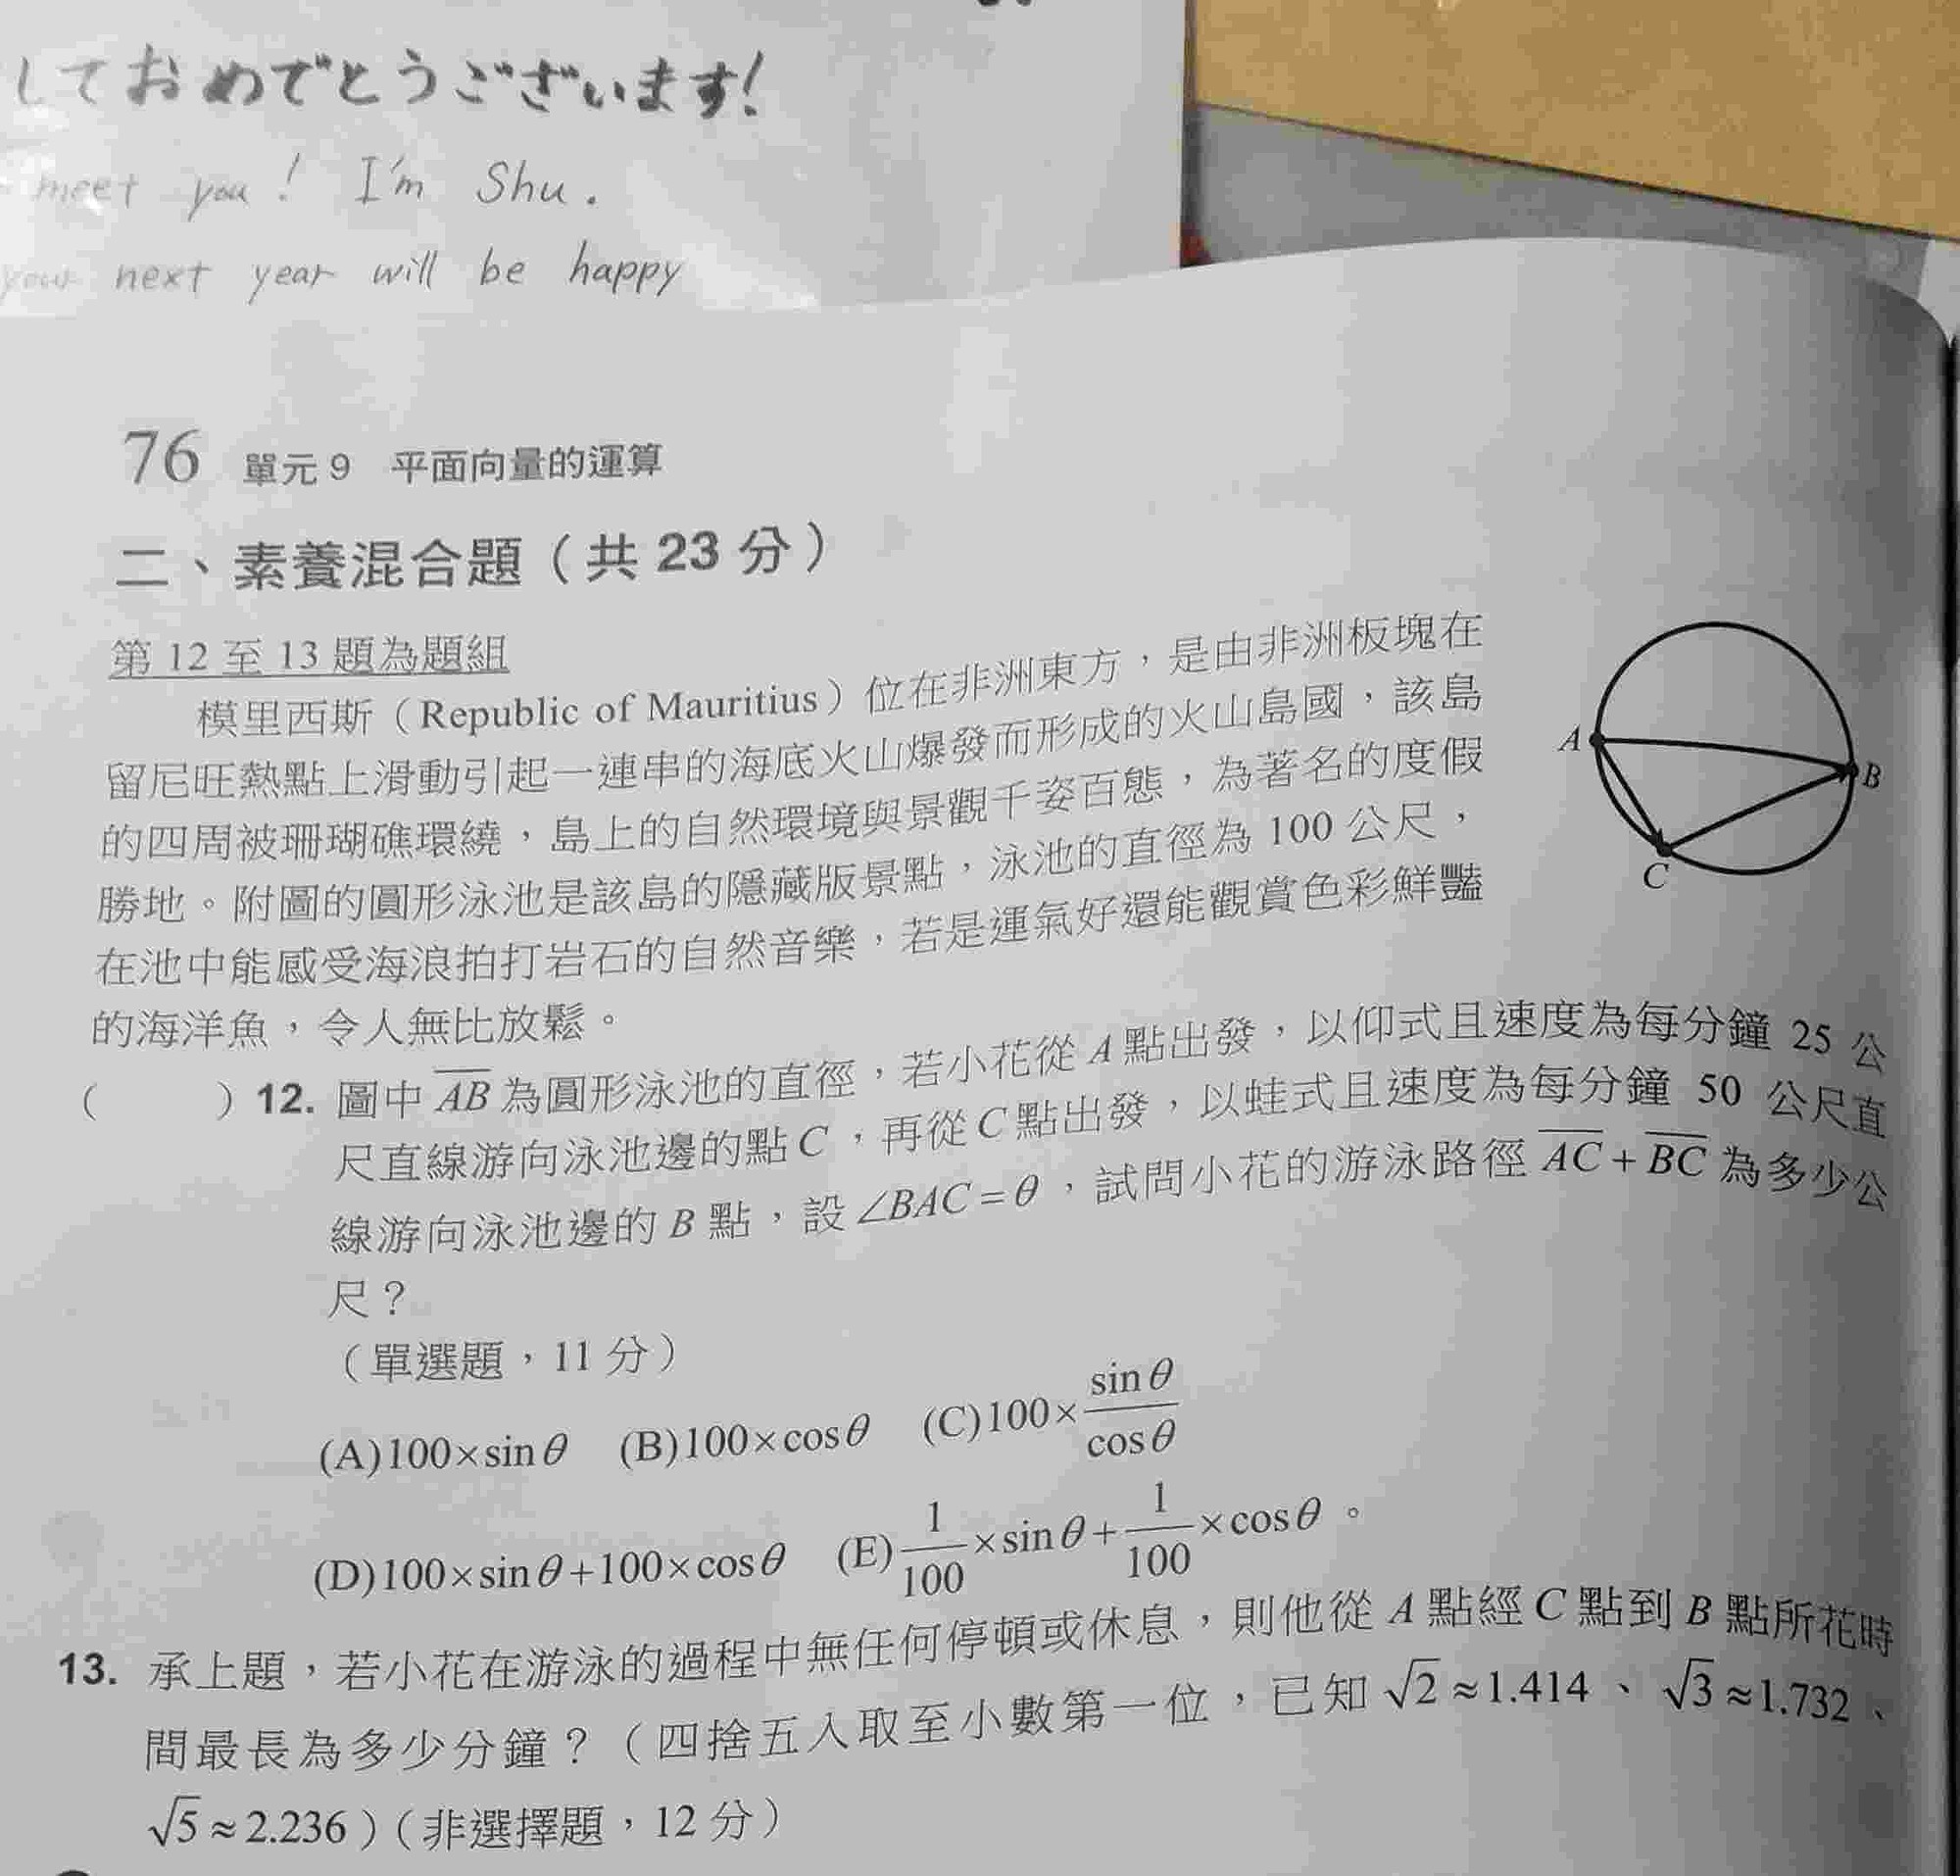 しておめでとうございます!
meet you! I'm Shu.
your next year will be happy
76 單元 9 平面向量的運算
二、素養混合題（共 23 分）
第 12 至 13 題為題組
模里西斯（Republic of Mauritius）位在非洲東方，是由非洲板塊在
留尼旺熱點上滑動引起一連串的海底火山爆發而形成的火山島國，該島
的四周被珊瑚礁環繞，島上的自然環境與景觀千姿百態，為著名的度假
勝地。附圖的圓形泳池是該島的隱藏版景點，泳池的直徑為 100 公尺，
在池中能感受海浪拍打岩石的自然音樂，若是運氣好還能觀賞色彩鮮豔
的海洋魚，令人無比放鬆。
A
B
C
（ ）12. 圖中 \overline{AB} 為圓形泳池的直徑，若小花從 A 點出發，以仰式且速度為每分鐘 25 公
尺直線游向泳池邊的點 C，再從 C 點出發，以蛙式且速度為每分鐘 50 公尺直
線游向泳池邊的 B 點，設 ∠BAC = θ，試問小花的游泳路徑 \overline{AC} + \overline{BC} 為多少公
尺？
（單選題，11 分）
(A)100×sinθ (B)100×cosθ (C)100×\frac{sinθ}{cosθ}
(D)100×sinθ+100×cosθ (E)\frac{1}{100}×sinθ+\frac{1}{100}×cosθ。
13. 承上題，若小花在游泳的過程中無任何停頓或休息，則他從 A 點經 C 點到 B 點所花時
間最長為多少分鐘？（四捨五入取至小數第一位，已知 √2 ≈1.414、√3 ≈1.732、
√5 ≈ 2.236）（非選擇題，12 分）